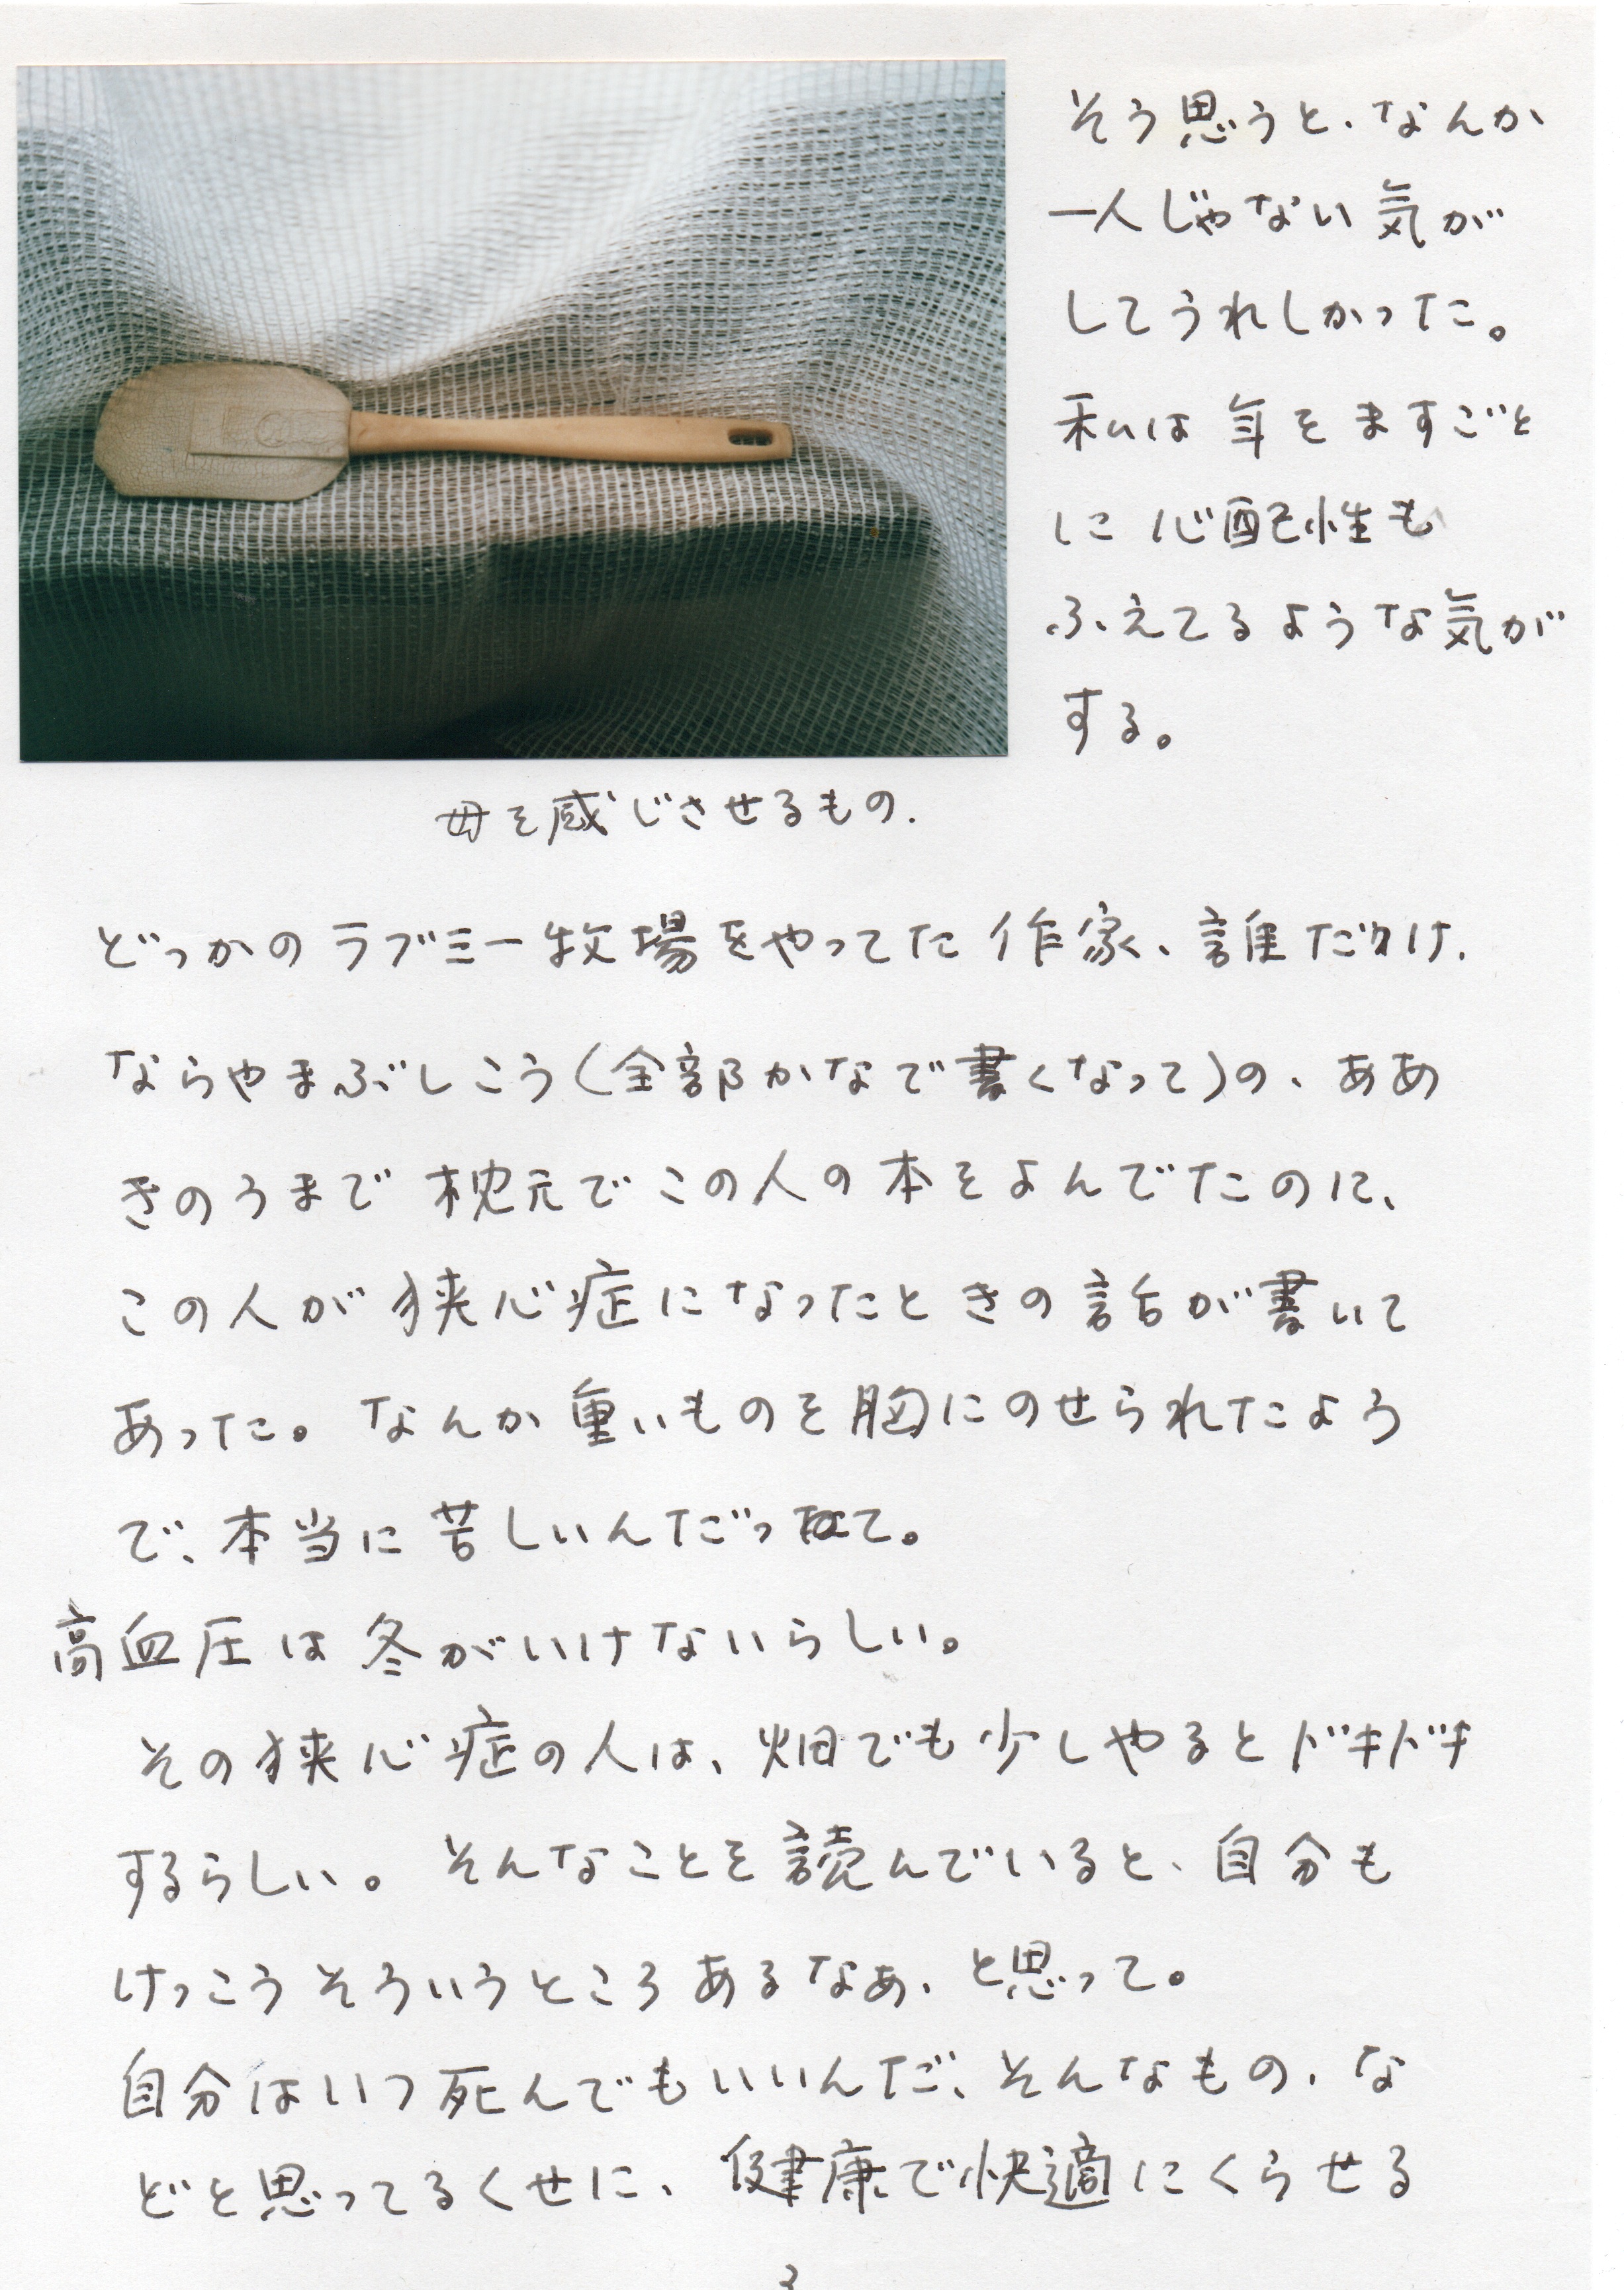 そう思うと、なんか
一人じゃない気が
してうれしかった。
私は年をますごと
に心配性も
ふえてるような気が
する。
母を感じさせるもの.
どっかのラブミー牧場をやってた作家、誰だっけ.
ならやまぶしこう(全部かなで書くなって)の、ああ
きのうまで枕元でこの人の本をよんでたのに、
この人が狭心症になったときの話が書いて
あった。なんか重いものを胸にのせられたよう
で、本当に苦しいんだって。
高血圧は冬がいけないらしい。
その狭心症の人は、畑でも少しやるとドキドキ
するらしい。そんなことを読んでいると、自分も
けっこうそういうところあるなぁ、と思って。
自分はいつ死んでもいいんだ、そんなもの、な
どと思ってるくせに、健康で快適にくらせる
3